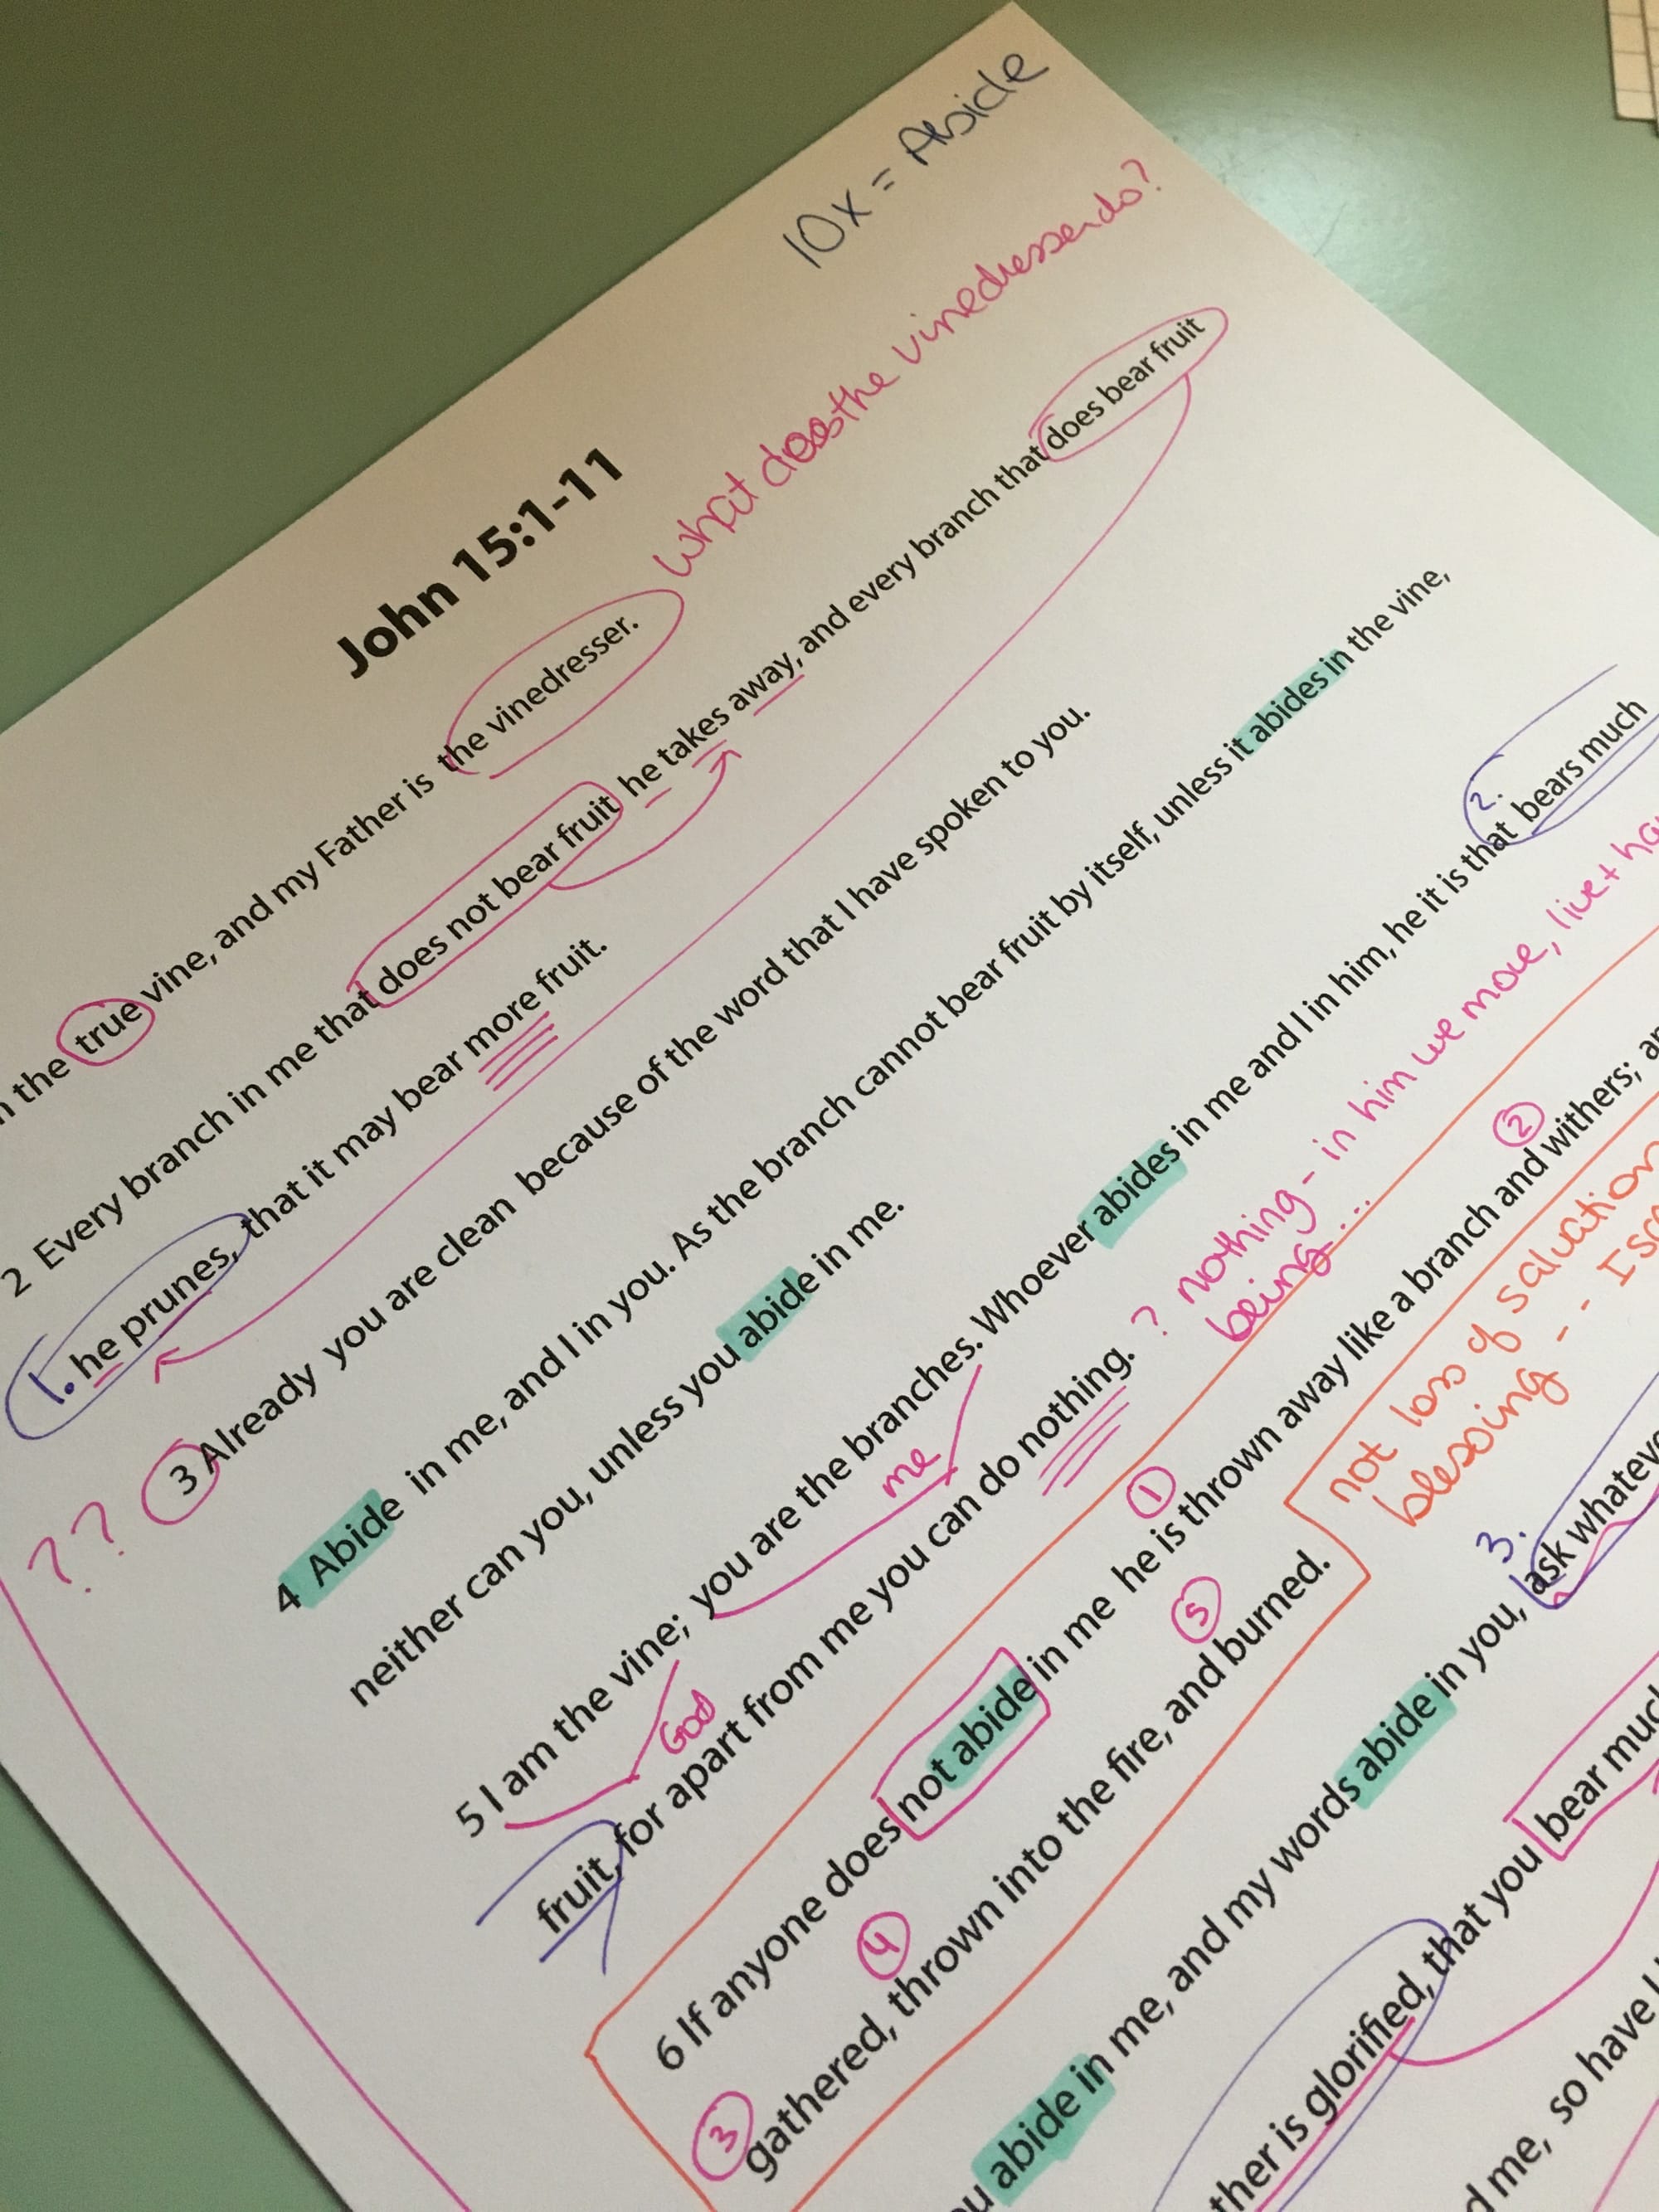 10x = Abide
John 15:1-11
What does the vinedresser do?
the true vine, and my Father is the vinedresser.
2 Every branch in me that does not bear fruit he takes away, and every branch that does bear fruit
1. he prunes, that it may bear more fruit.
?? 3 Already you are clean because of the word that I have spoken to you.
4 Abide in me, and I in you. As the branch cannot bear fruit by itself, unless it abides in the vine,
neither can you, unless you abide in me.
2.
5 I am the vine; you are the branches. Whoever abides in me and I in him, he it is that bears much
God me
fruit, for apart from me you can do nothing. ? nothing - in him we move, live +
being...
1 2
6 If anyone does not abide in me he is thrown away like a branch and withers;
3 4 5
gathered, thrown into the fire, and burned.
not loss of salvation
blessing - -
3.
abide in me, and my words abide in you, ask
is glorified, that you bear
me, so have I